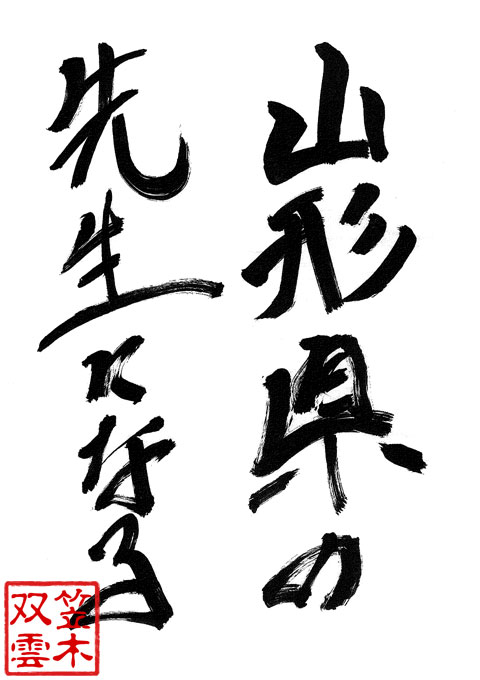 山形県の
先生になる
笠木
双雲